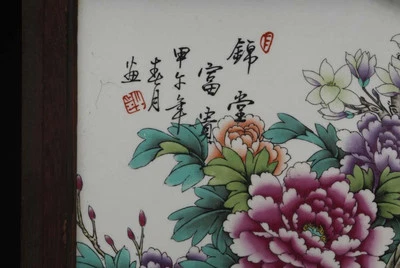 錦堂
富貴
甲午年
春月
画